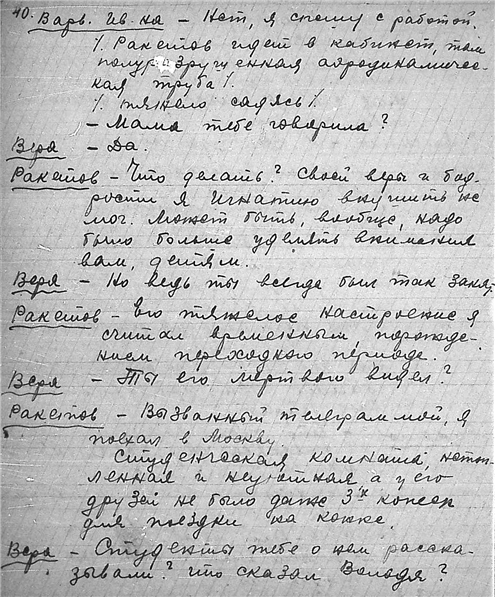 40. Варв. Ив-на – Нет, я спешу с работой.
/. Ракетов идет в кабинет, там
полуразрушенная аэродинамичес-
кая труба /.
/. тяжело садясь /.
– Мама тебе говорила?
Вера – Да.
Ракетов – Что делать? Своей веры и бод-
рости я Игнатию внушить не
мог. Может быть, вообще, надо
было больше уделять внимания
вам, детям.
Вера – Но ведь ты всегда был так занят.
Ракетов – Его тяжелое настроение я
считал временным, порожде-
нием переходного периода.
Вера – Ты его мертвого видел?
Ракетов – Вызванный телеграммой, я
поехал в Москву.
Студенческая комната, нетоп-
ленная и неуютная, а у его
друзей не было даже 3х копеек
для поездки на конке.
Вера – Студенты тебе о нем расска-
зывали? Что сказал Володя?